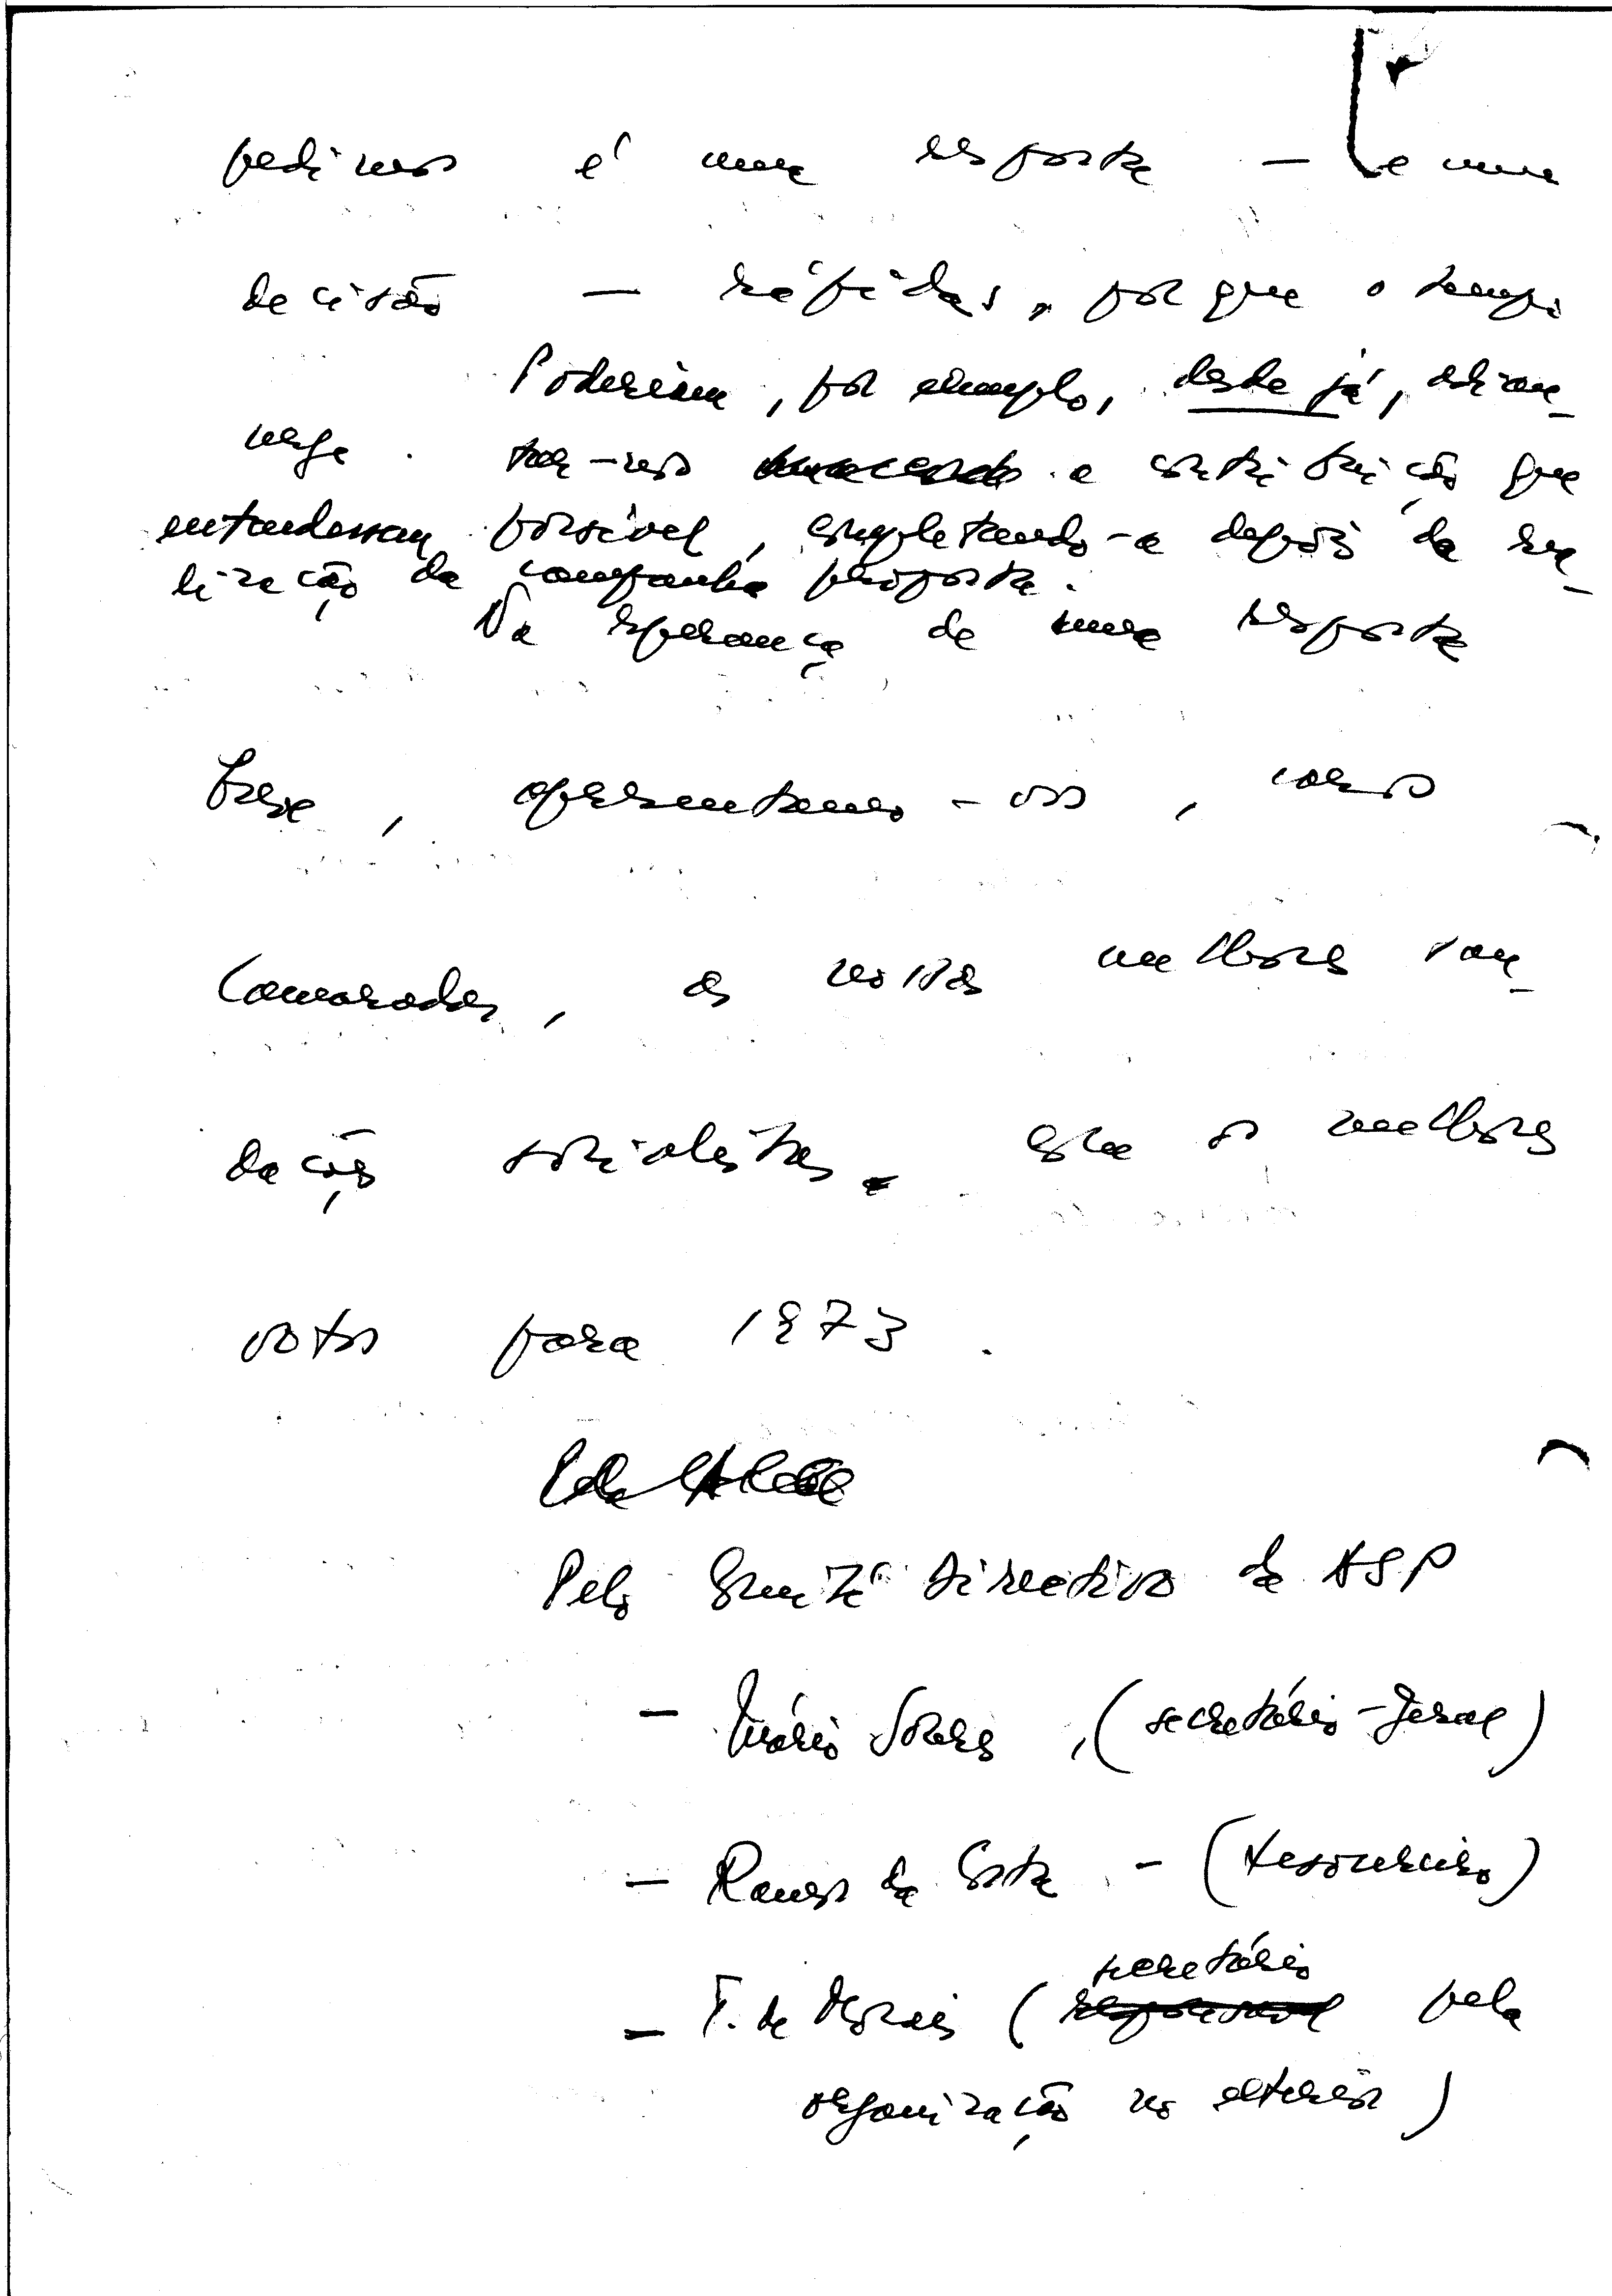 pedimos é uma resposta — e uma
decisão — rápidas, porque o tempo
urge. Poderiam, por exemplo, desde já, adian-
tar-nos a contribuição que
entendessem possível, completando-a depois da rea-
lização da campanha proposta.
Na esperança de uma resposta
breve, apresentamos-vos, caros
Camaradas, as nossas melhores sau-
dações socialistas, e os melhores
votos para 1973.
Pelo Comité Directivo da ASP
— Mário Soares, (secretário-geral)
— Ramos da Costa — (tesoureiro)
secretário
— T. de Morais (responsável pela
organização no exterior)